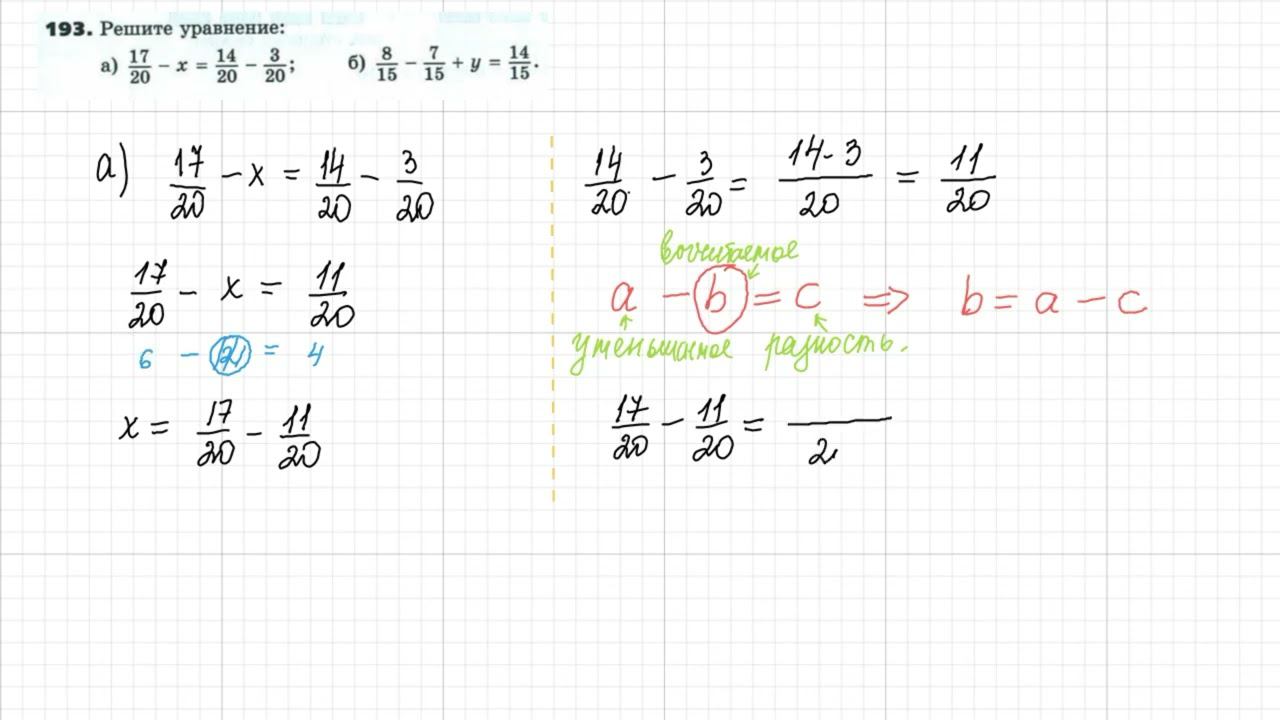 193. Решите уравнение:
а) 17/20 − x = 14/20 − 3/20; б) 8/15 − 7/15 + y = 14/15.
а) 17/20 − x = 14/20 − 3/20
17/20 − x = 11/20
6 − 2 = 4
x = 17/20 − 11/20
14/20 − 3/20 = 14-3/20 = 11/20
вычитаемое
a − b = c ⇒ b = a − c
уменьшаемое разность.
17/20 − 11/20 = /2